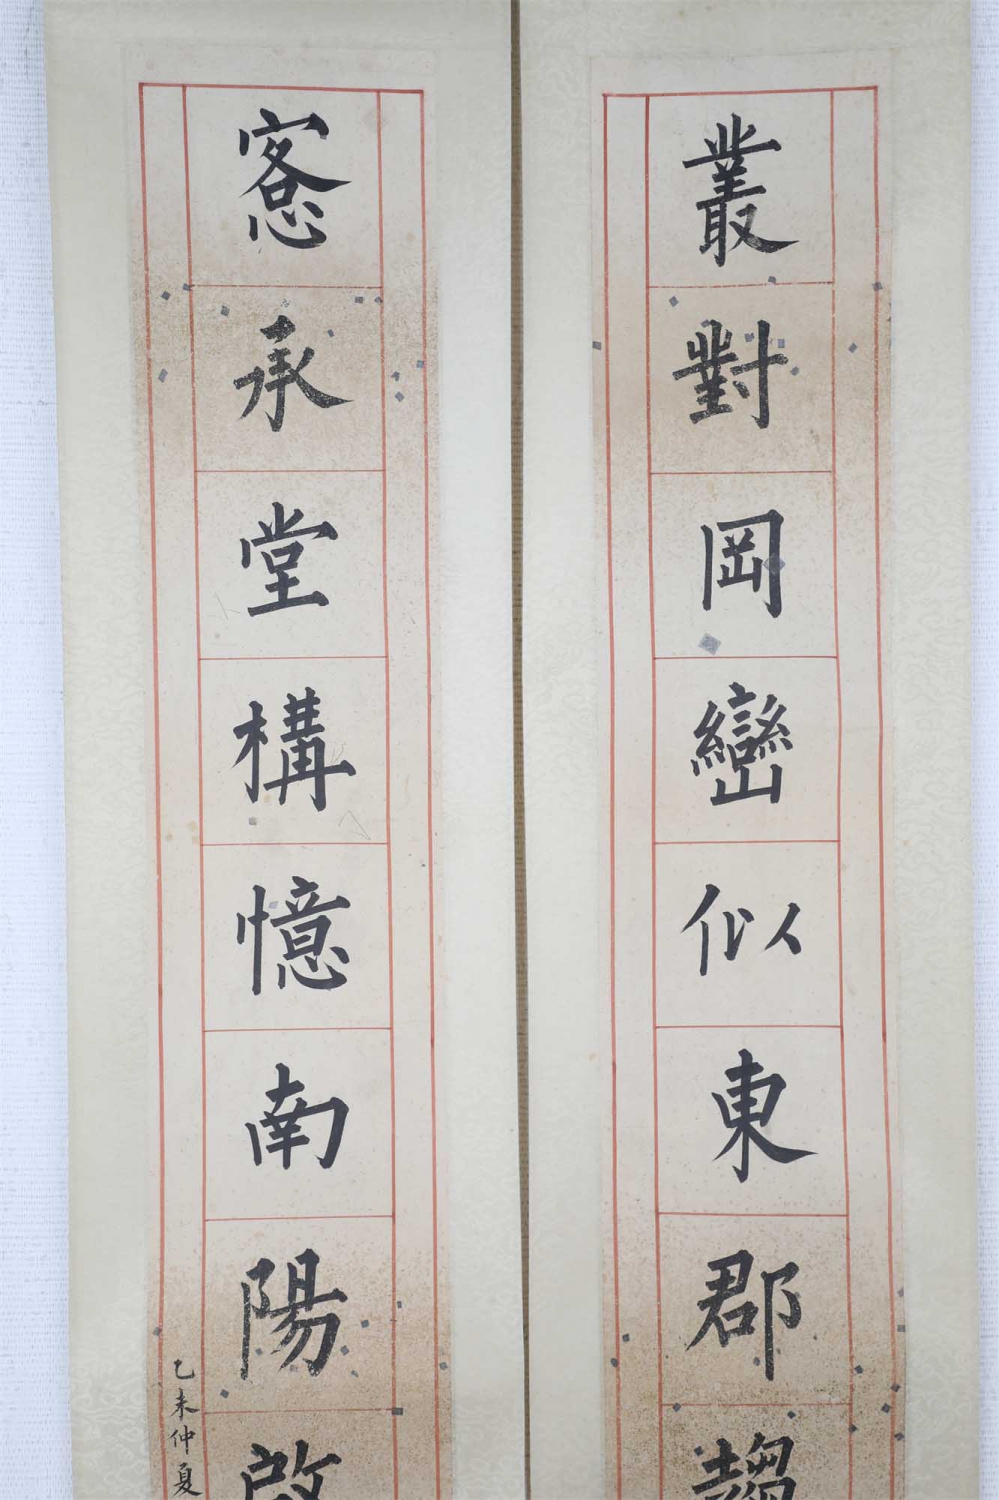 叢對岡巒似東郡
愙承堂構憶南陽啟
乙未仲夏